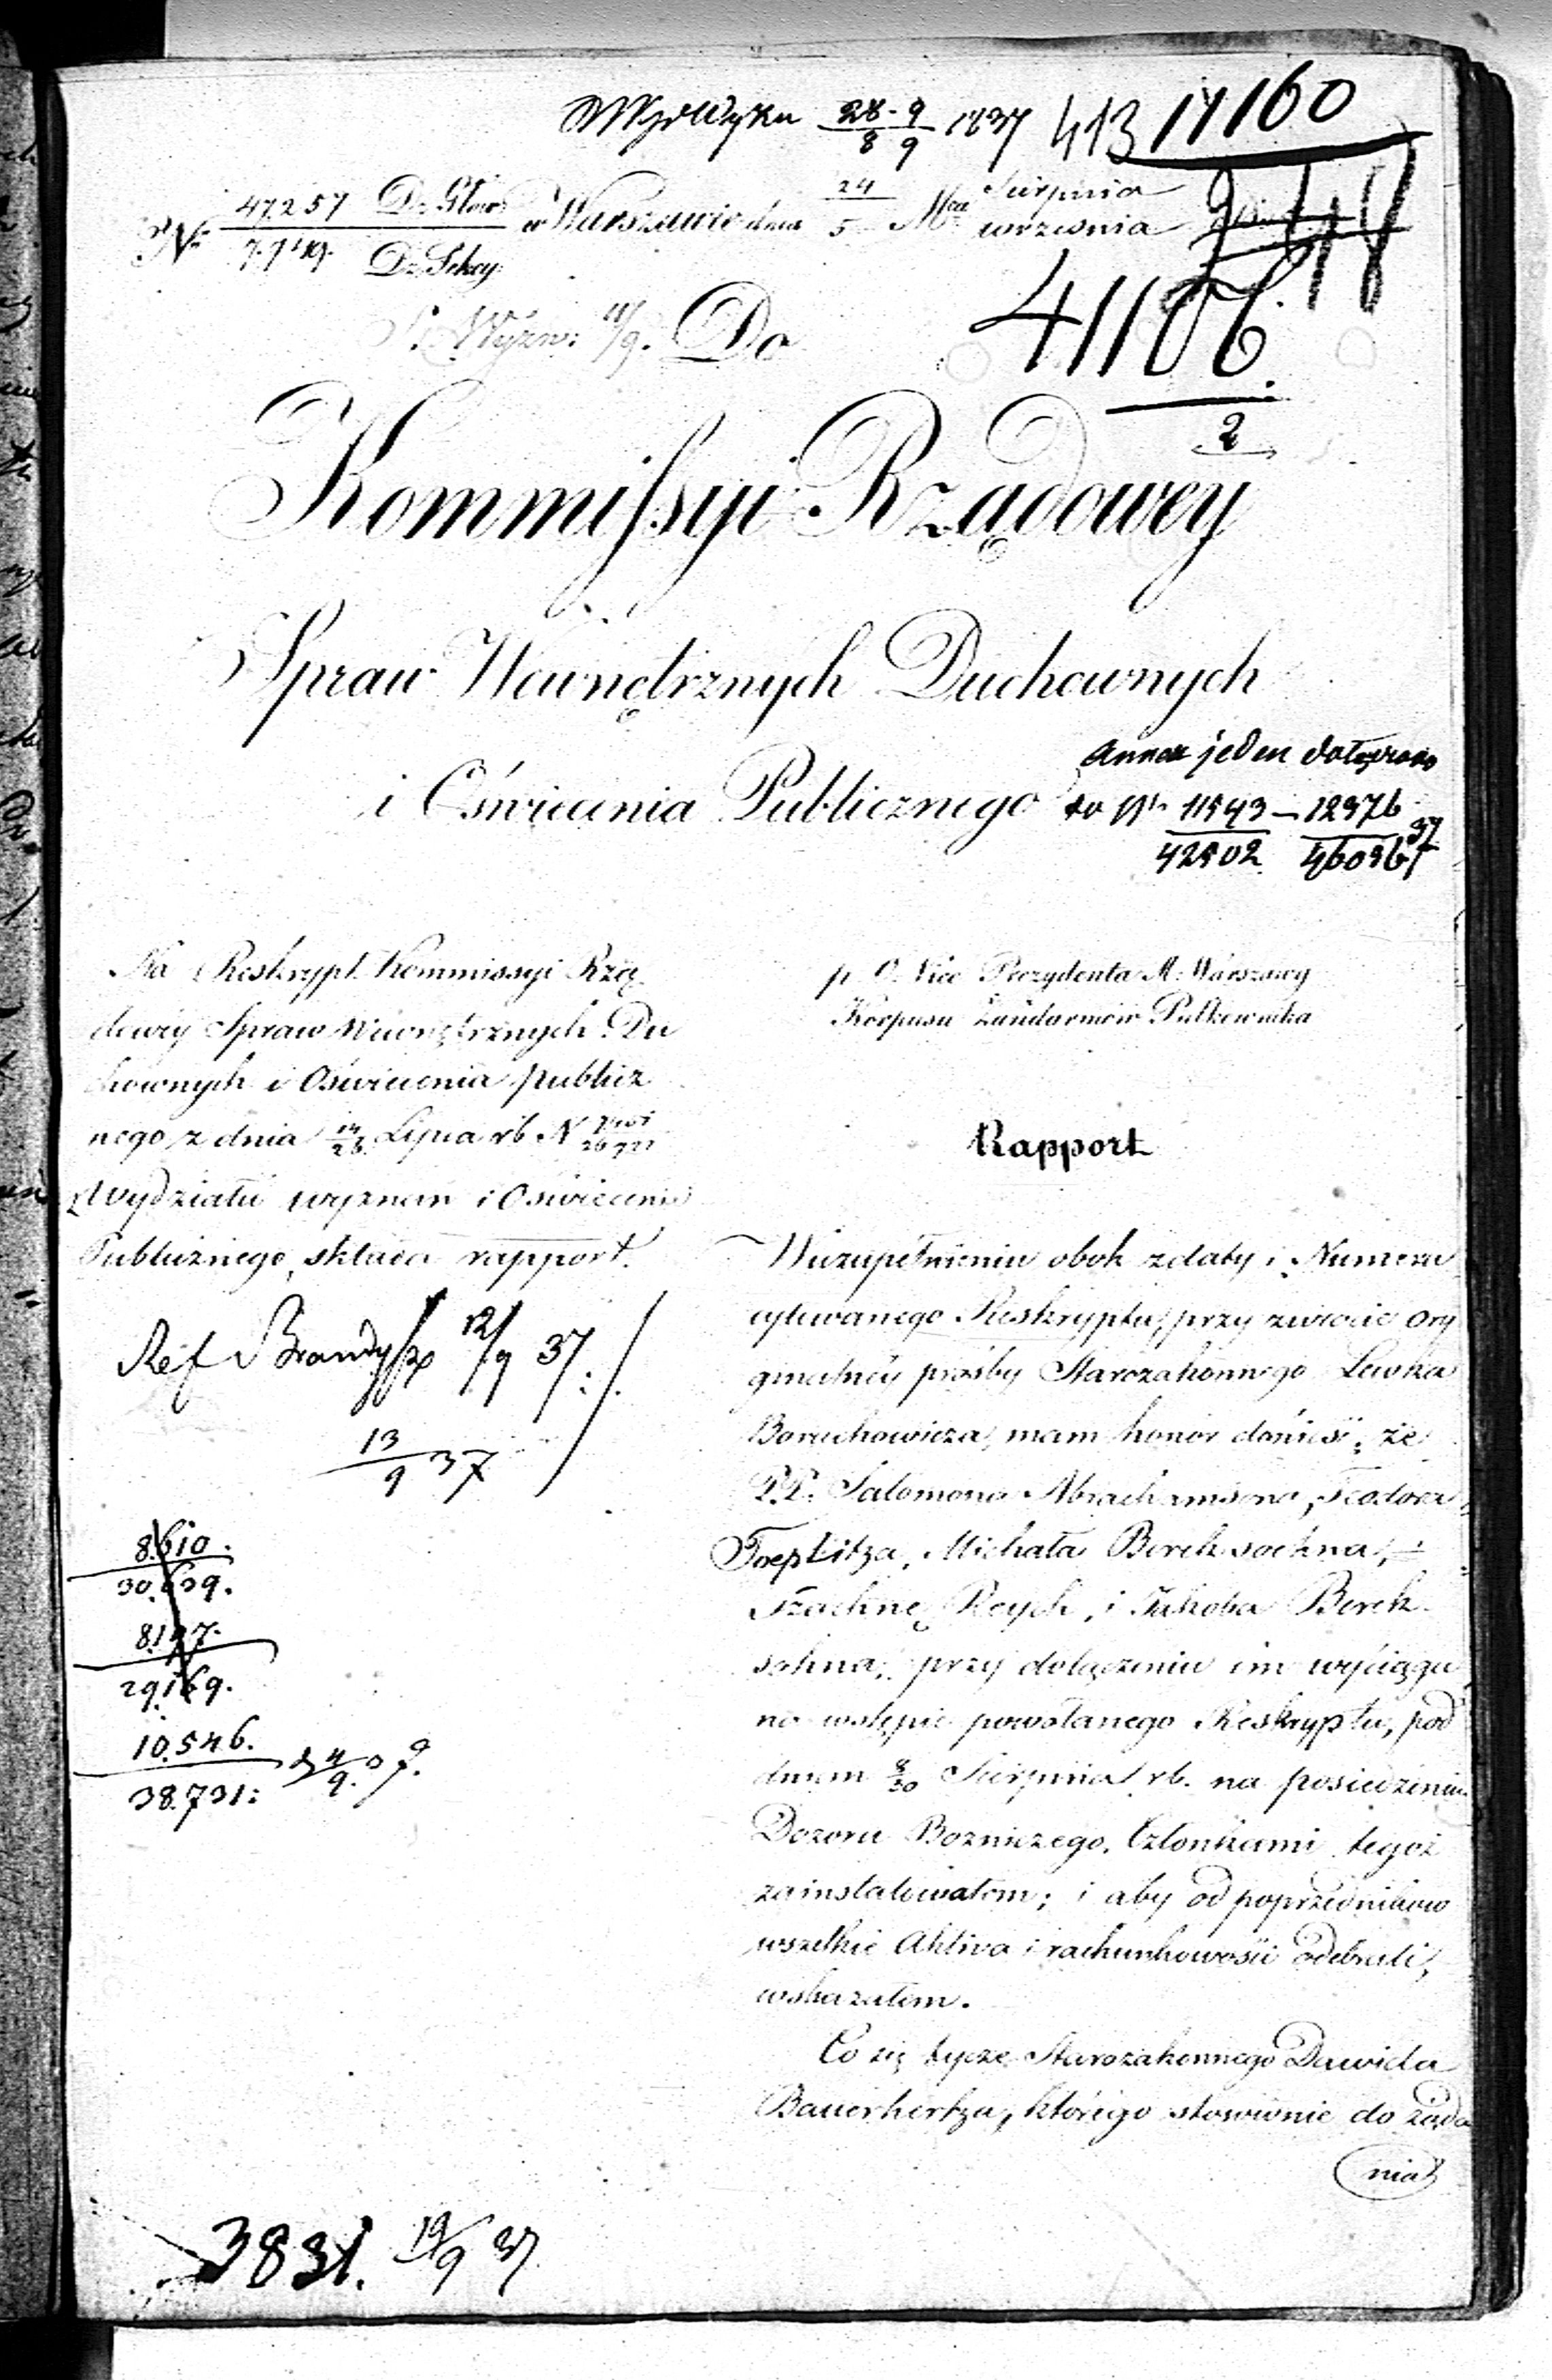 28-9 1837 413 11160
8 9
No 47257 Dz. Głow w Warszawie dnia 24 Mca Sierpnia
7.749. Dz. Sekcy 5 września
Wyzn: 11/9. Do
41106.
2
Kommissyi Rządowey
Spraw Wewnętrznych Duchownych
i Oświecenia Publicznego
Annex jeden dołączono
do Nr 11543 – 12376
42502 46036/37
Na Reskrypt Kommissyi Rzą
dowey Spraw Wewnętrznych Du
chownych i Oświecenia publicz
nego z dnia 14/26 Lipca rb. N
z Wydziału wyznań i Oświecenia
Publicznego, składa rapport.
Ref 12/9 37.
13/9 37
8.610.
30.639.
8.197.
29.169.
10.546.
38.731:
3831. 19/9 37
p. O. Vice Prezydenta M: Warszawy
Korpusu Żandarmów Pułkownika
Rapport
W uzupełnieniu obok z daty i Numeru
cytowanego Reskryptu, przy zwrocie ory
ginalnéy prośby Starozakonnego Lewka
Boruchowicza, mam honor donieść, że
P.P. Salomona Abrachamsona, Teodora
Toeplitza, Michała Bereksohna,
Szachnę Reych, i Jakóba Berek
sohna, przy dołączeniu im wyciągu
na wstępie powołanego Reskryptu, pod
dniem 8/20 Sierpnia rb. na posiedzeniu
Dozoru Bozniczego, Członkami tegoż
zainstalowałem; i aby od poprzedników
wszelkie Aktiva i rachunkowości odebrali,
wskazałem.
Co się tycze Starozakonnego Dawida
Bauerhertza, którego stosownie do żąda
nia